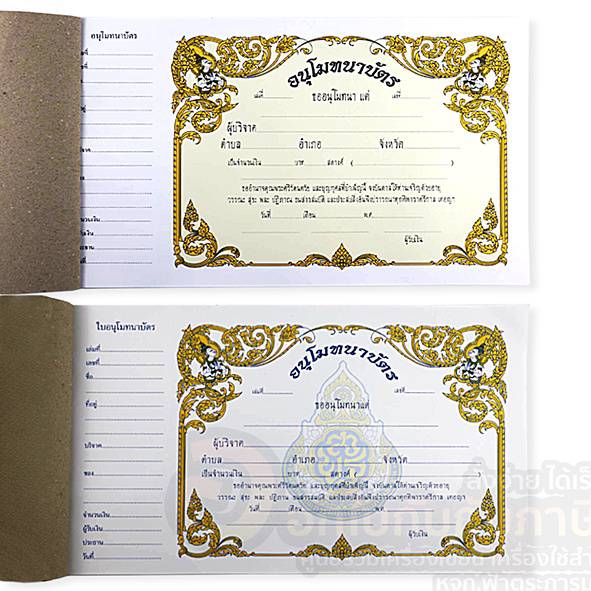 อนุโมทนาบัตร
เล่มที่
เลขที่
ชื่อ
ที่อยู่
บริจาค
จำนวนเงิน
ผู้รับเงิน
ประธาน
วันที่
อนุโมทนาบัตร
เล่มที่ เลขที่
ขออนุโมทนา แด่
ผู้บริจาค
ตำบล อำเภอ จังหวัด
เป็นจำนวนเงิน บาท สตางค์ ( )
ขออำนาจคุณพระศรีรัตนตรัย และบุญกุศลที่บำเพ็ญนี้ จงบันดาลให้ท่านเจริญด้วยอายุ
วรรณะ สุขะ พละ ปฏิภาณ ธนสารสมบัติ และประสบสิ่งอันพึงปรารถนาทุกทิพาราตรีกาล เทอญฯ
วันที่ เดือน พ.ศ.
ผู้รับเงิน
ใบอนุโมทนาบัตร
เล่มที่
เลขที่
ชื่อ
ที่อยู่
บริจาค
ของ
จำนวนเงิน
ผู้รับเงิน
ประธาน
วันที่
อนุโมทนาบัตร
เล่มที่ เลขที่
ขออนุโมทนาแด่
ผู้บริจาค
ตำบล อำเภอ จังหวัด
เป็นจำนวนเงิน บาท สตางค์ ( )
ขออำนาจคุณพระศรีรัตนตรัย และบุญกุศลที่บำเพ็ญนี้ จงบันดาลให้ท่านเจริญด้วยอายุ
วรรณะ สุขะ พละ ปฏิภาณ ธนสารสมบัติ และประสบสิ่งอันพึงปรารถนาทุกทิพาราตรีกาล เทอญฯ
วันที่ เดือน พ.ศ.
ผู้รับเงิน
สั่งง่าย ได้เร็
ศูนย์รวมเครื่องเขียน เครื่องใช้สำ
หจก.ฟ้าตระการ